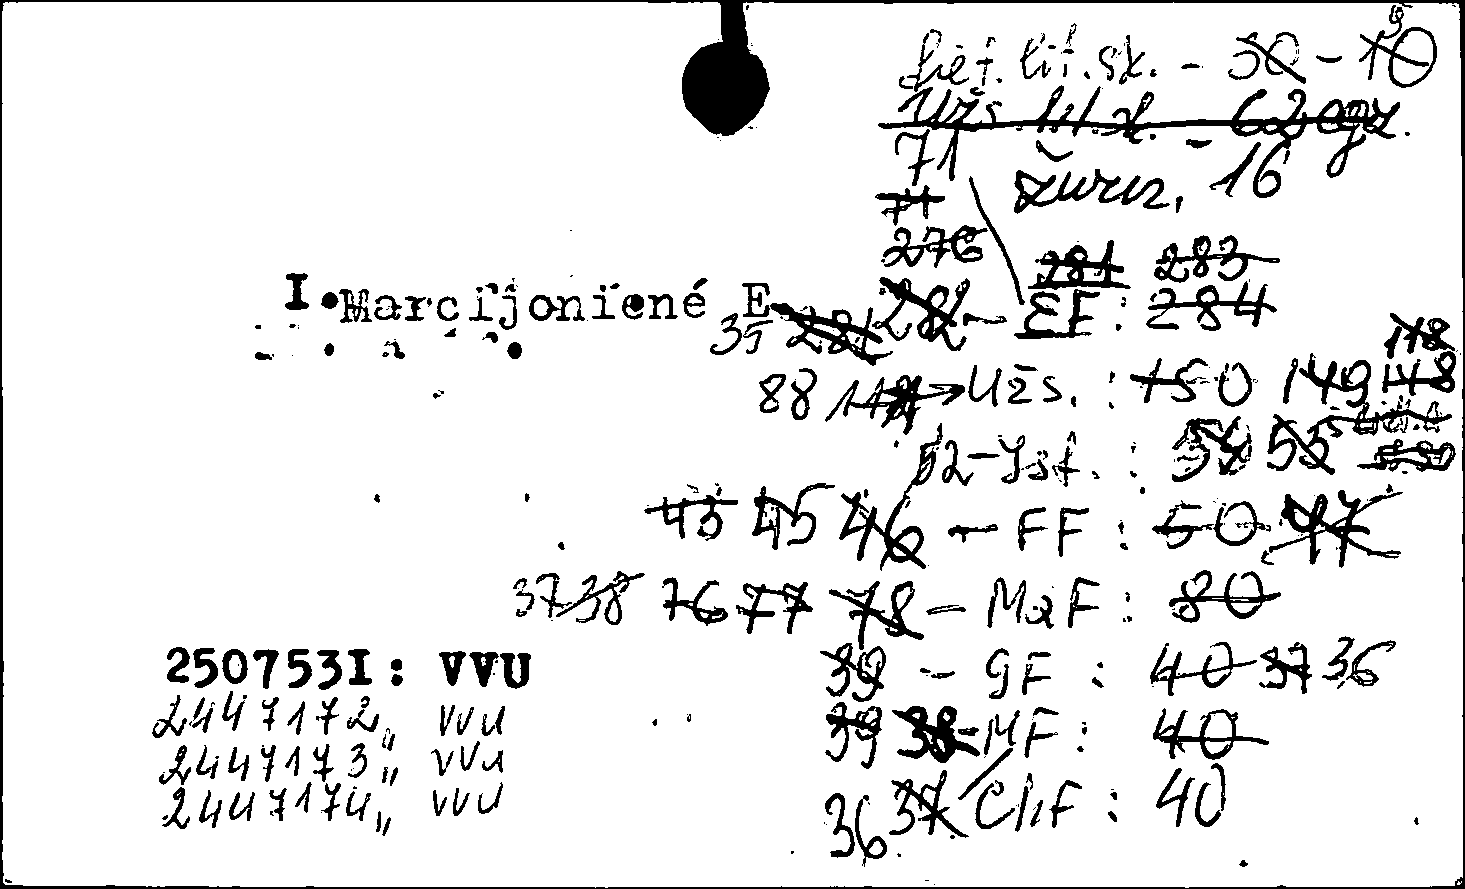 9
Liet. lit. sk. - 30 - 10
Užs. lit. sk. - 62 egz.
71
žurn. 16
71
276
281 283
I. Marcijonienė E
35 281 282 - EF: 284
118
88 → Užs.: 150 149 148
52 - Ist.: 55
43 45 46 - FF: 50 47
37 38 76 77 78 - MaF: 80
250753I: VVU
39 - GF: 40 37 36
2447172,, VVU
39 38 - MF: 40
2447173,, VVU
2447174,, VVU
36 37 ChF: 40